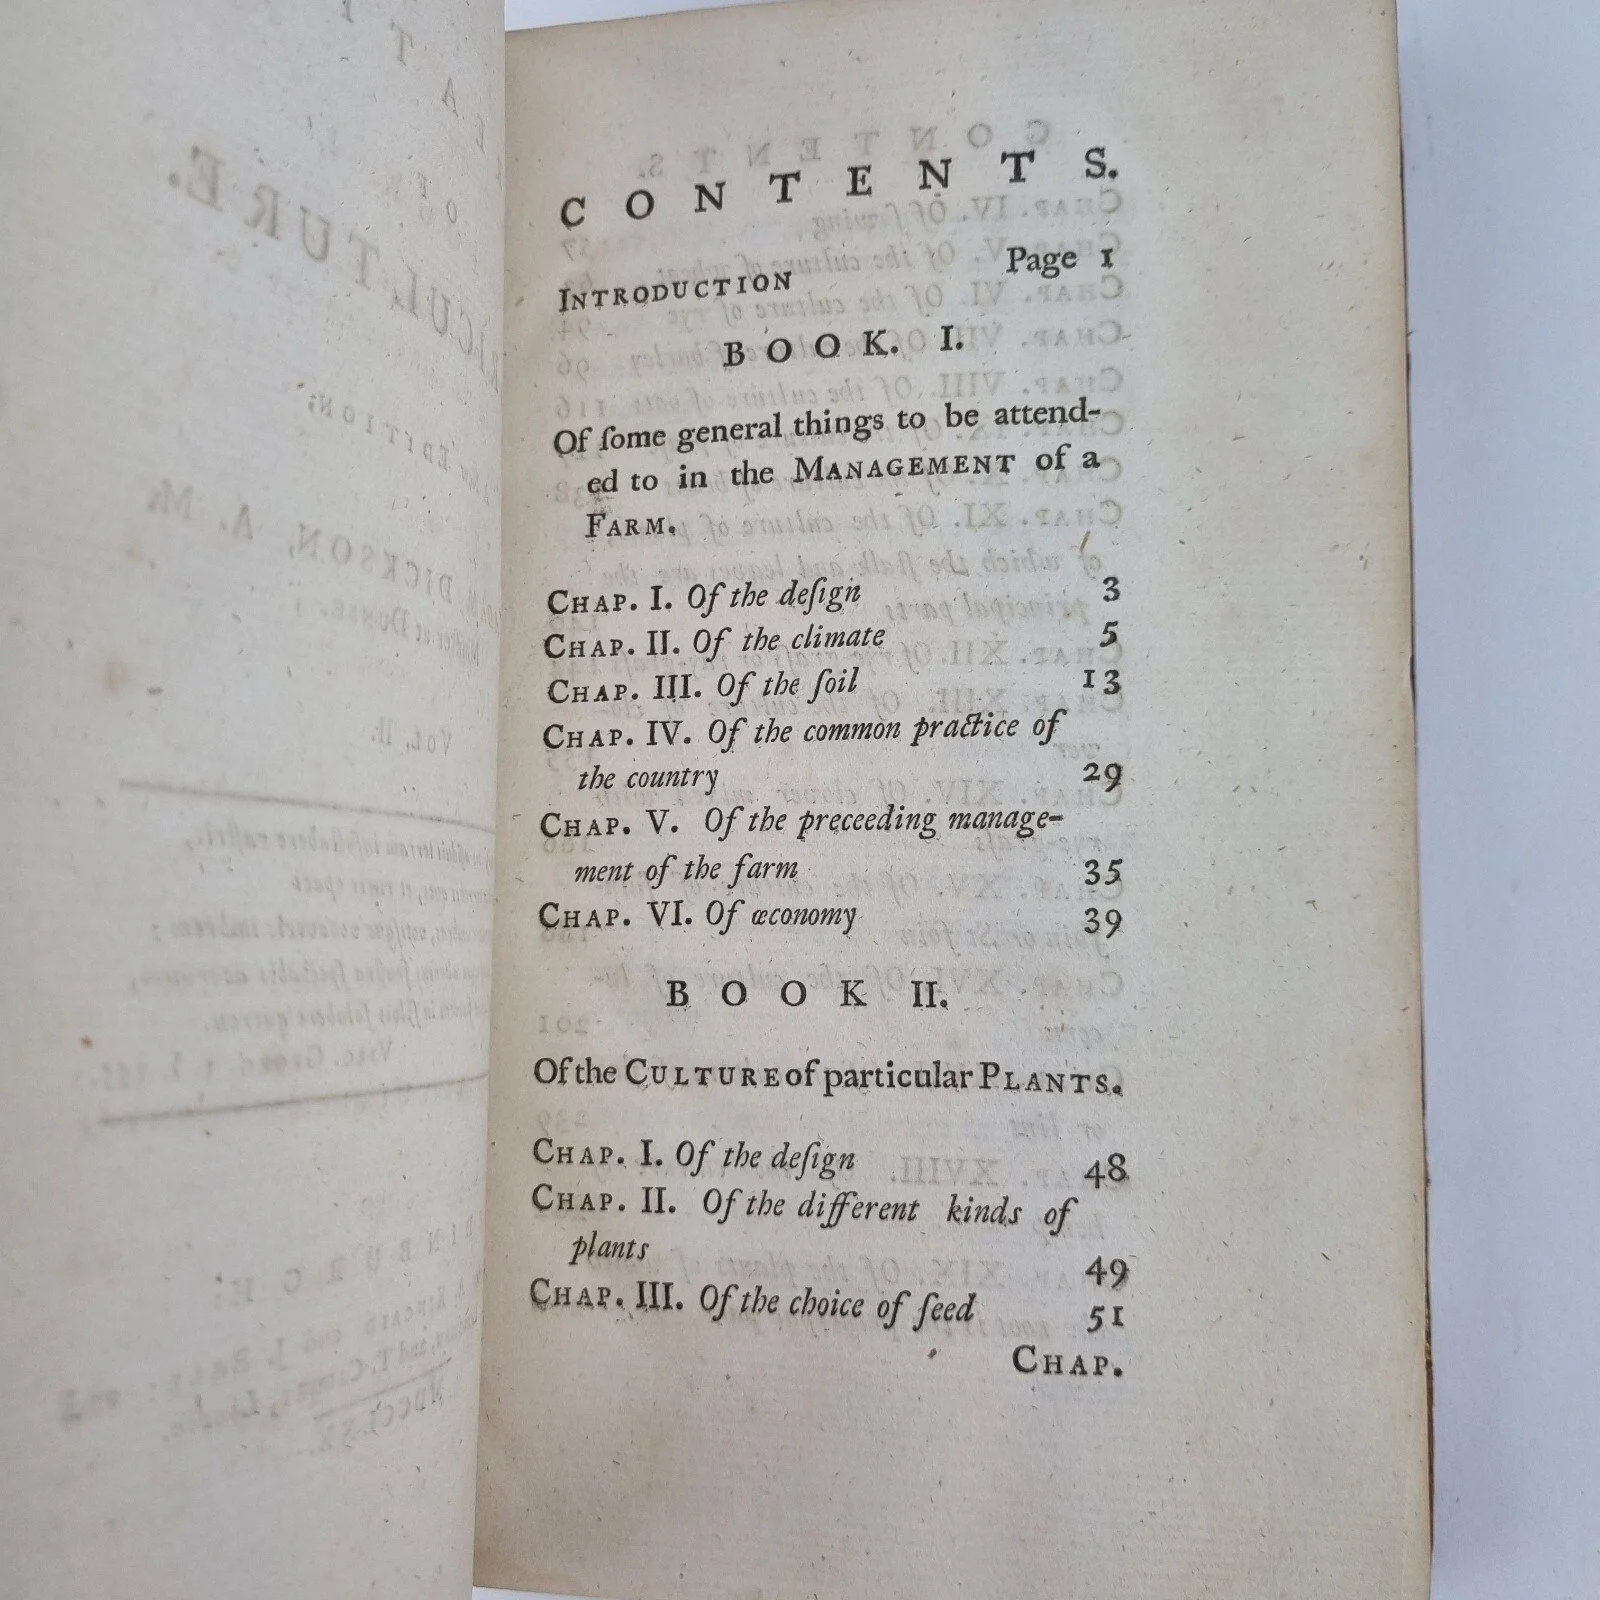 CONTENTS.
INTRODUCTION Page 1
BOOK. I.
Of ſome general things to be attend-
ed to in the MANAGEMENT of a
FARM.
CHAP. I. Of the deſign 3
CHAP. II. Of the climate 5
CHAP. III. Of the ſoil 13
CHAP. IV. Of the common practice of
the country 29
CHAP. V. Of the preceeding manage-
ment of the farm 35
CHAP. VI. Of œconomy 39
BOOK II.
Of the CULTURE of particular PLANTS.
CHAP. I. Of the deſign 48
CHAP. II. Of the different kinds of
plants 49
CHAP. III. Of the choice of ſeed 51
CHAP.